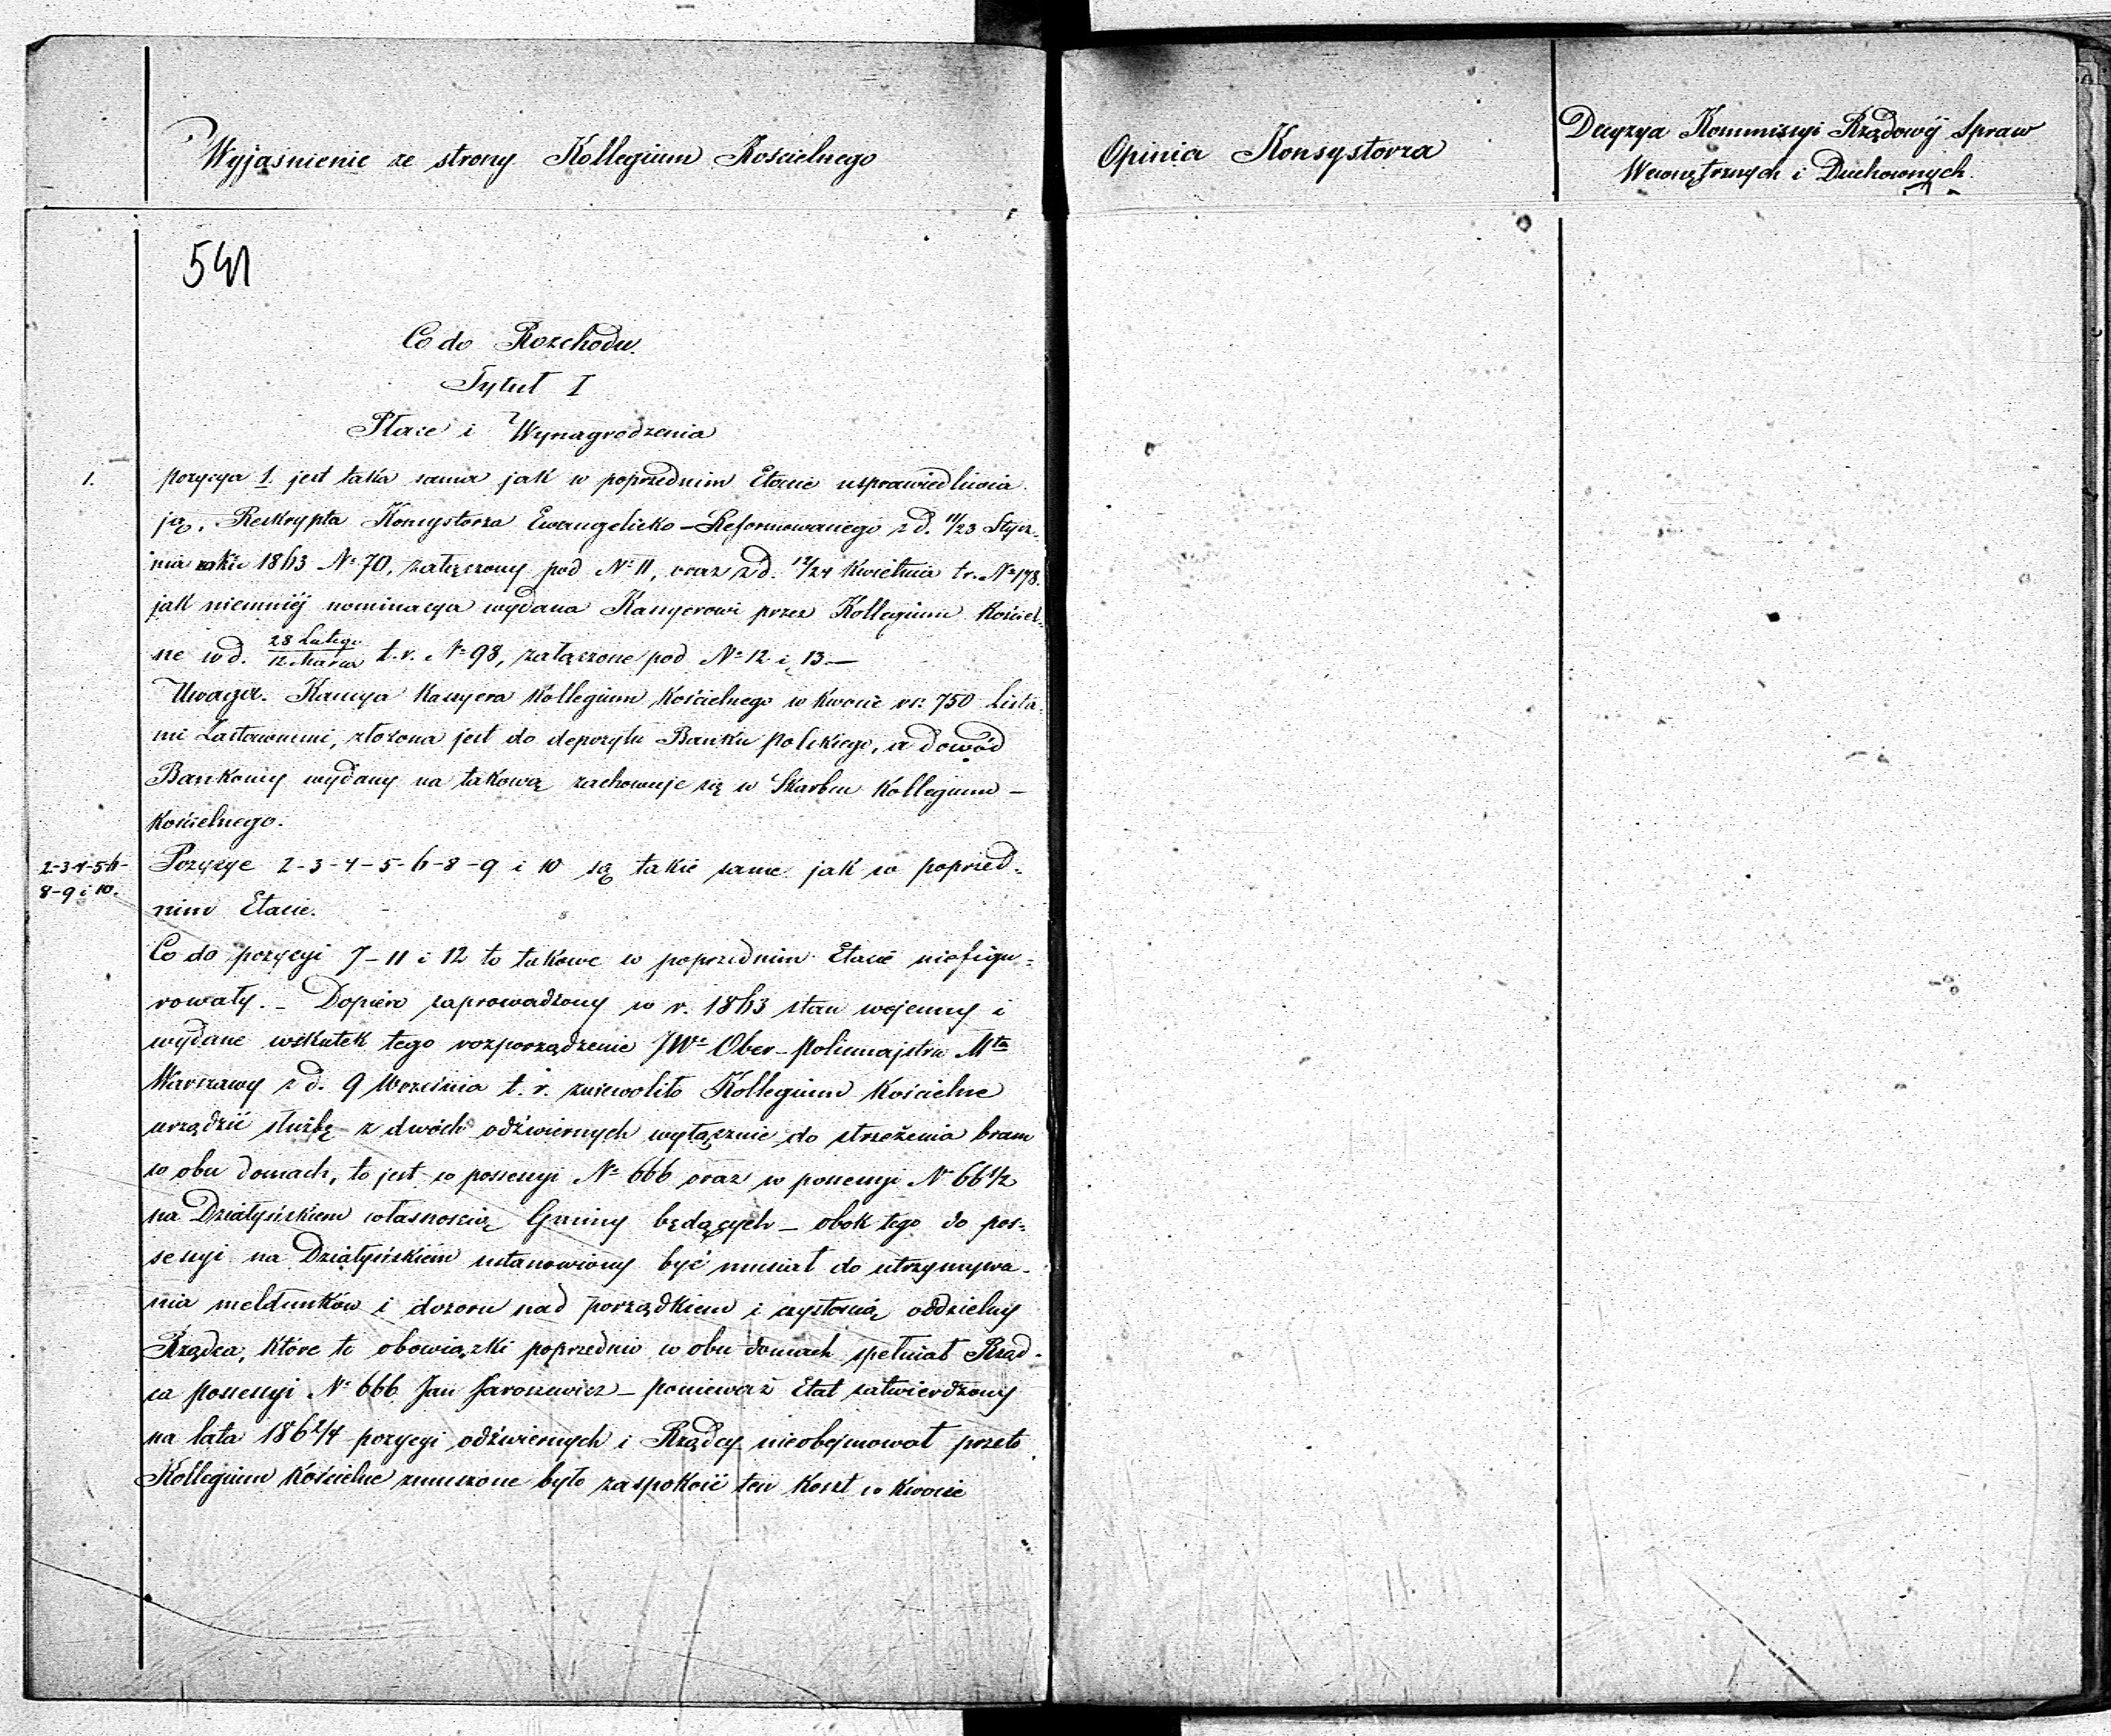 Wyjaśnienie ze strony Kollegium Kościelnego
Opinia Konsystorza
Decyzya Kommissyi Rządowéj Spraw
Wewnętrznych i Duchownych.
541
Co do Rozchodu.
Tytuł I
Płace i Wynagrodzenia
1. pozycya 1. jest taka sama jak w poprzednim Etacie usprawiedliwia
ją, Reskrypta Konsystorza Ewangelicko-Reformowanego z d. 11/23 Stycz-
nia roku 1863 Nº 70, załączony pod Nº 11, oraz z d. 12/24 Kwietnia t.r. Nº 178.
jak niemniéj nominacya wydana Kassyerowi przez Kollegium Kościel-
ne w d. 28 Lutego/12 Marca t.r. Nº 98, załączone pod Nº 12 i 13.—
Uwaga. Kaucya Kassyera Kollegium Kościelnego w kwocie rs: 750 Lista-
mi Zastawnemi, złożona jest do depozytu Banku Polskiego, a dowód
Bankowy wydany na takową zachowuje się w Skarbcu Kollegium —
Kościelnego.
2-3-4-5-6-
8-9 i 10.
Pozycye 2-3-4-5-6-8-9 i 10 są takie same jak w poprzed-
nim Etacie.
Co do pozycyi 7-11 i 12 to takowe w poprzednim Etacie niefigu=
rowały. — Dopiero zaprowadzony w r. 1863 stan wojenny i
wydane wskutek tego rozporządzenie JWº Ober-Policmajstra Mta
Warszawy z d. 9 Września t. r. zniewoliło Kollegium Kościelne
urządzić służbę z dwóch odźwiernych wyłącznie do strzeżenia bram
w obu domach, to jest w possessyi Nº 666 oraz w possessyi Nº 66 1/2
na Działyńskiem własnością Gminy będących — obok tego do pos=
sessyi na Działyńskiém ustanowiony być musiał do utrzymywa-
nia meldunków i dozoru nad porządkiem i czystością oddzielny
Rządca, które to obowiązki poprzednio w obu domach spełniał Rząd-
ca possessyi Nº 666 Jan Jaroszewicz — ponieważ Etat zatwierdzony
na lata 186 2/4 pozycyi odźwiernych i Rządcy nieobejmował przeto
Kollegium Kościelne zmuszone było zaspokoić ten koszt w kwocie